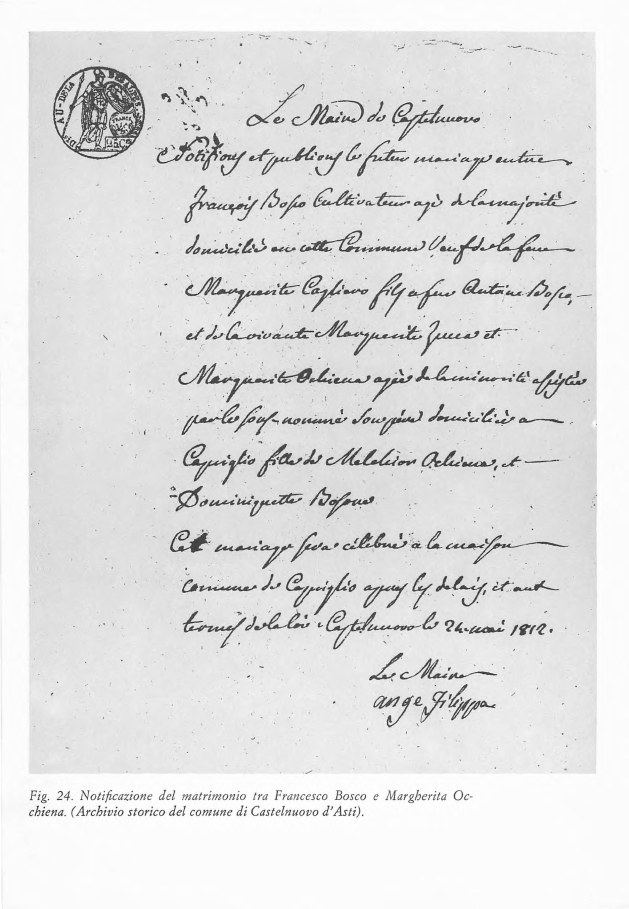 Le Maire de Castelnuovo
Notifions et publions le futur mariage entre
François Bosco Cultivateur agé de la majorité
domicilié en cette Commune Veuf de la feue
Marguerite Cagliero fils a feu Antoine Bosco,
et de la vivante Marguerite Zucca et
Marguerite Ochiena agée de la minorité assistée
par le sous-nommé son pére domiciliée a
Capriglio fille de Melchior Ochiena, et
Dominiquette Bosone
Cet mariage sera célébré a la maison
comune de Capriglio apres les delais, et aux
termes de la loi. Castelnuovo le 24 mai 1812.
Le Maire
ange Filippa
Fig. 24. Notificazione del matrimonio tra Francesco Bosco e Margherita Oc-
chiena. (Archivio storico del comune di Castelnuovo d'Asti).